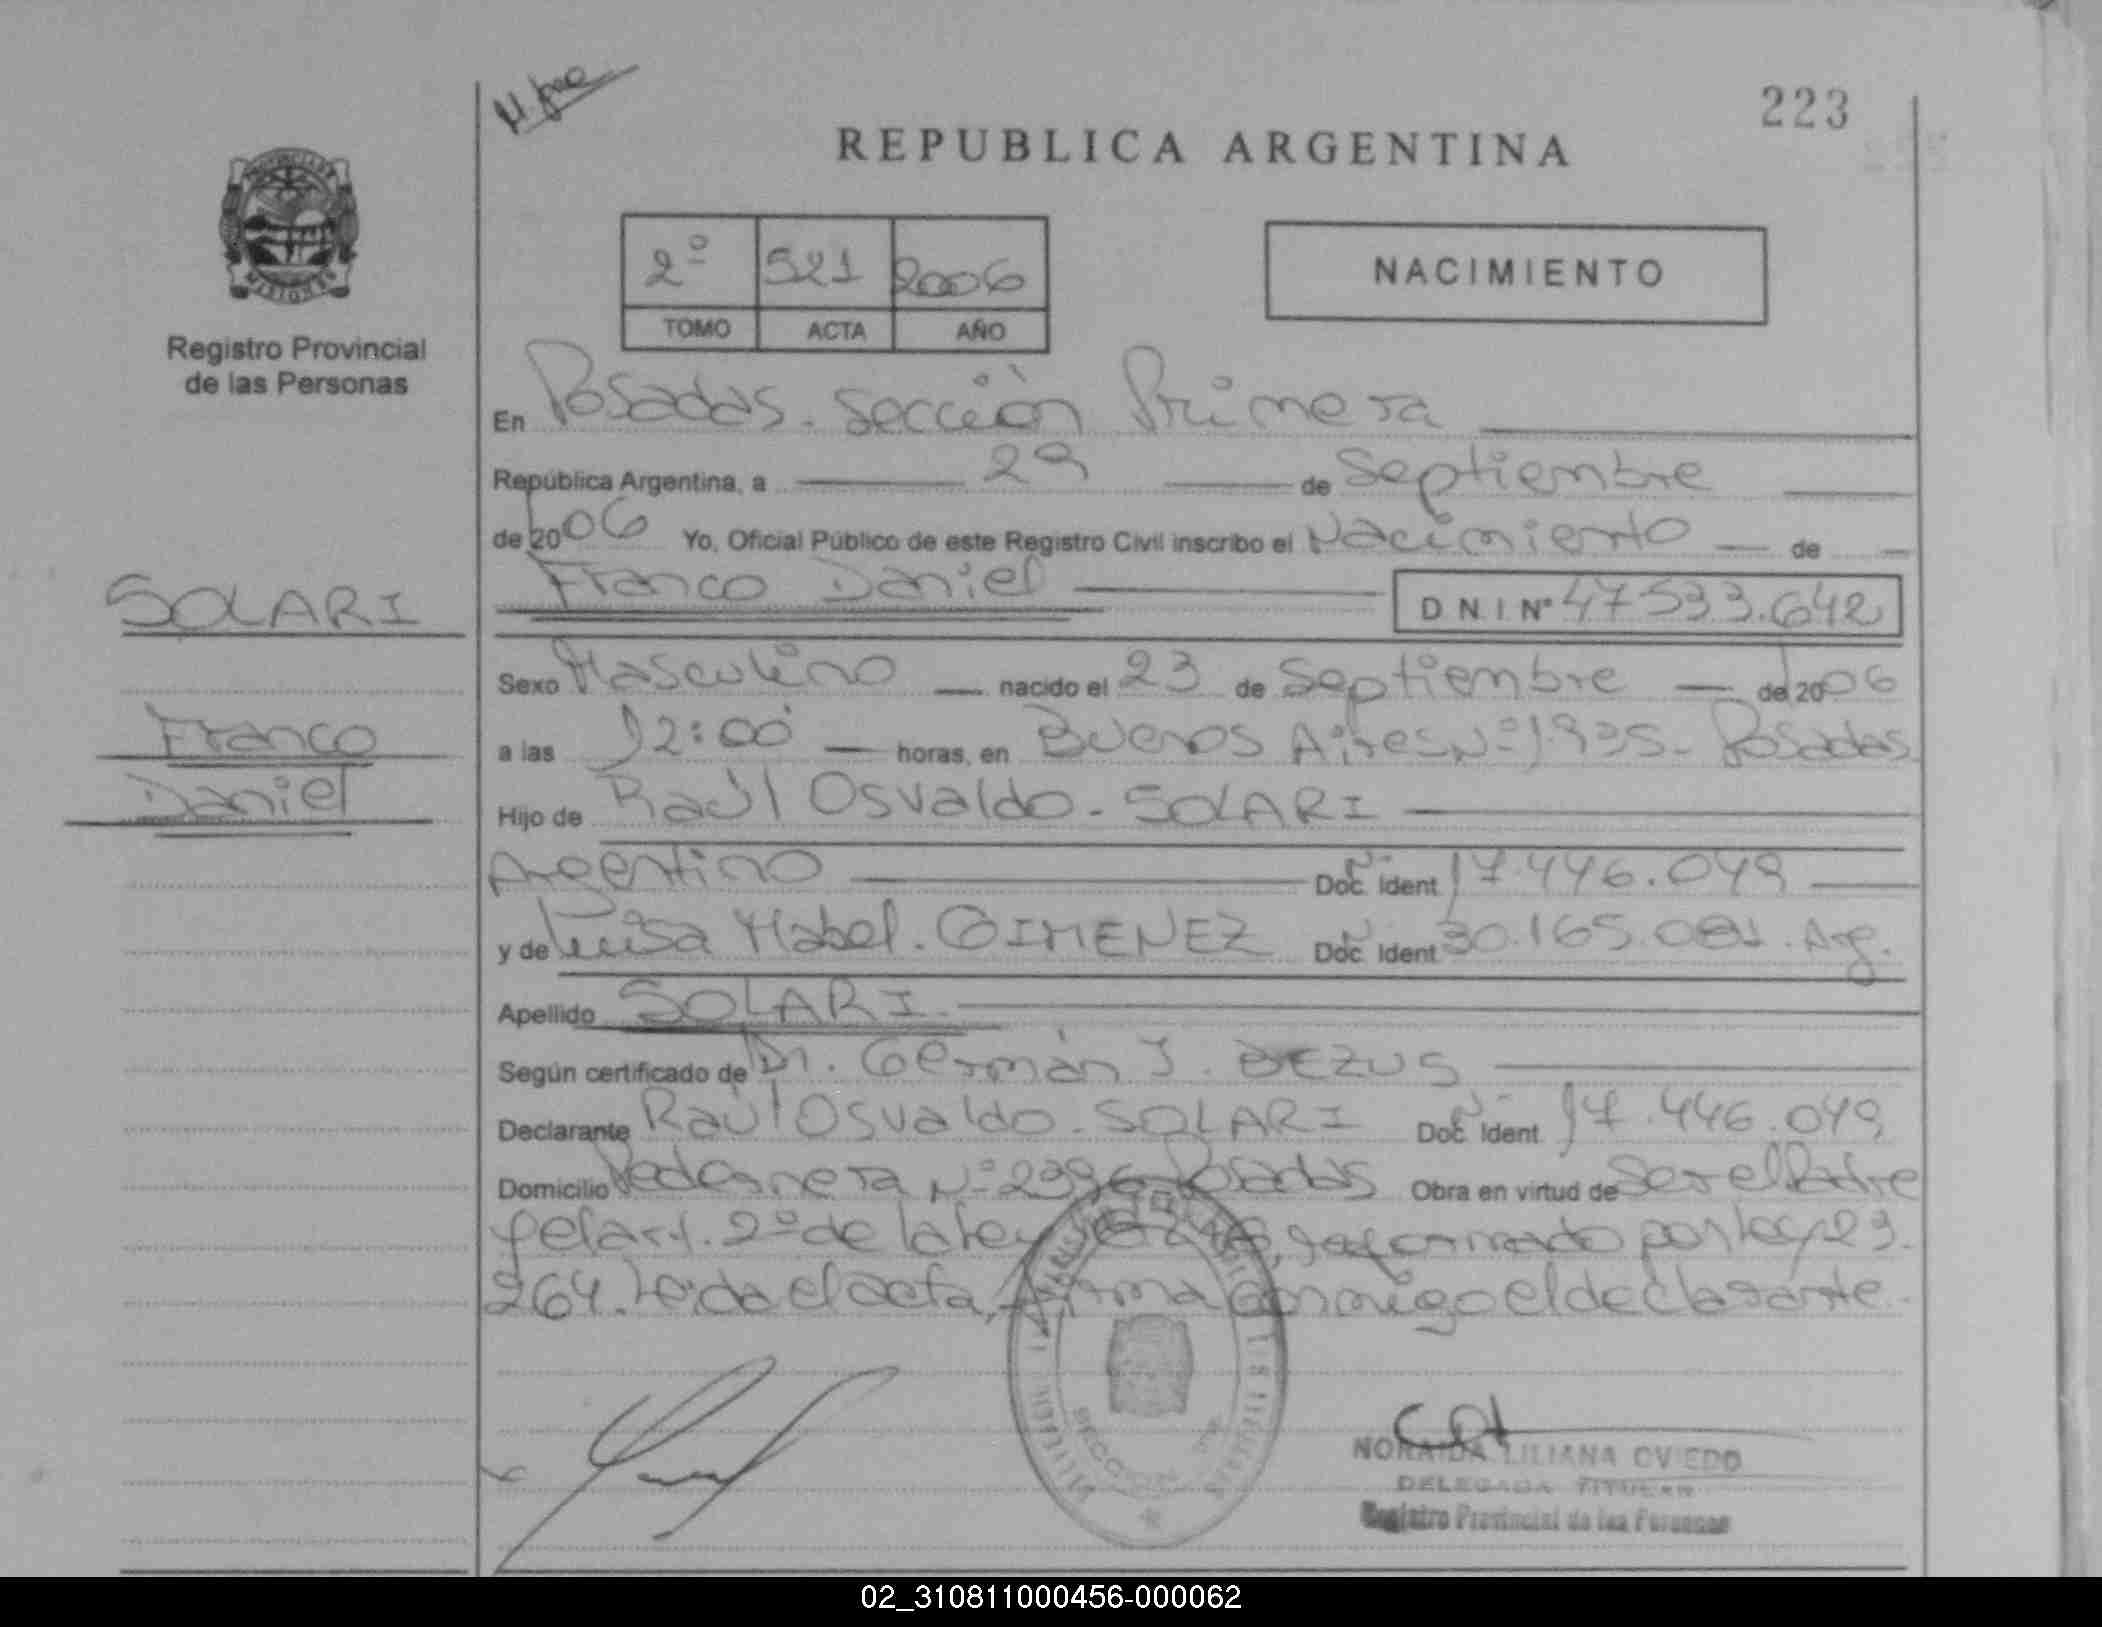 223
REPUBLICA ARGENTINA
PROVINCIA DE
MISIONES
Registro Provincial
de las Personas
2º 521 2006
TOMO ACTA AÑO
NACIMIENTO
En Posadas. Sección Primera
República Argentina, a 29 de Septiembre
de 2006 Yo, Oficial Público de este Registro Civil inscribo el Nacimiento de
Franco Daniel D.N.I. Nº 47533.642
SOLARI
Franco
Daniel
Sexo Masculino nacido el 23 de Septiembre de 2006
a las 12:00 horas, en Buenos Aires Nº 1935 - Posadas
Hijo de Raúl Osvaldo - SOLARI
Argentino Doc. Ident 17.446.049
y de Luisa Mabel. GIMENEZ Doc. Ident 30.165.081. Arg.
Apellido SOLARI
Según certificado de Dr. Germán J. BEZUS
Declarante Raúl Osvaldo - SOLARI Doc. Ident 17.446.049
Domicilio Pedernera Nº 2396 Posadas Obra en virtud de Ser el Padre
y el art. 2º de la ley reformado por ley 23.
264. Leída el acta, firma conmigo el declarante.
NORAIDA LILIANA OVIEDO
DELEGADA TITULAR
Registro Provincial de las Personas
02_310811000456-000062